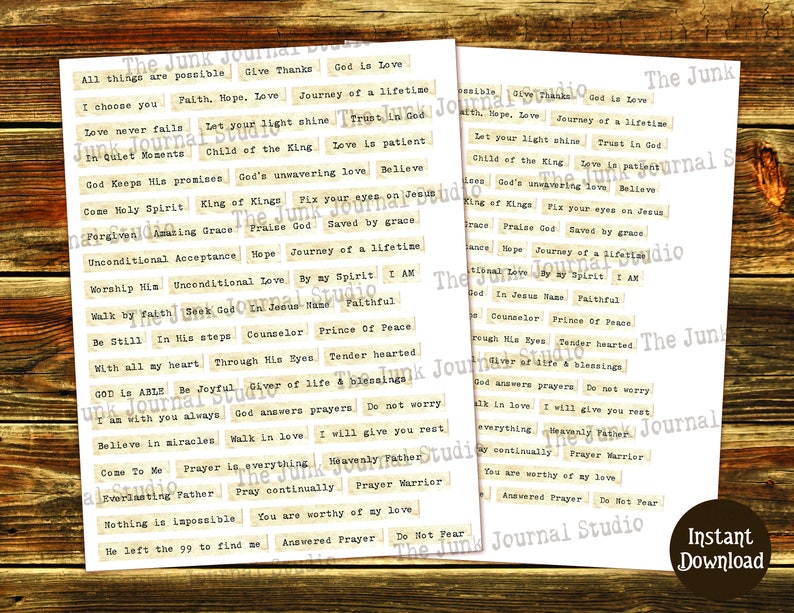 The Junk Journal Studio
All things are possible Give Thanks God is Love
I choose you Faith. Hope. Love Journey of a lifetime
Love never fails Let your light shine Trust in God
In Quiet Moments Child of the King Love is patient
God Keeps His promises God's unwavering love Believe
Come Holy Spirit King of Kings Fix your eyes on Jesus
Forgiven Amazing Grace Praise God Saved by grace
Unconditional Acceptance Hope Journey of a lifetime
Worship Him Unconditional Love By my Spirit I AM
Walk by faith Seek God In Jesus Name Faithful
Be Still In His steps Counselor Prince Of Peace
With all my heart Through His Eyes Tender hearted
GOD is ABLE Be Joyful Giver of life & blessings
I am with you always God answers prayers Do not worry
Believe in miracles Walk in love I will give you rest
Come To Me Prayer is everything Heavenly Father
Everlasting Father Pray continually Prayer Warrior
Nothing is impossible You are worthy of my love
He left the 99 to find me Answered Prayer Do Not Fear
The Junk Journal Studio
Junk Journal Studio
The Junk Journal Studio
The Junk Journal Studio
Junk Journal Studio
The Junk Journal Studio
Junk Journal Studio
The Junk Journal Studio
The Junk
Give Thanks God is Love
Faith. Hope. Love Journey of a lifetime
Let your light shine Trust in God
Child of the King Love is patient
God's unwavering love Believe
King of Kings Fix your eyes on Jesus
Praise God Saved by grace
Hope Journey of a lifetime
Love By my Spirit I AM
God In Jesus Name Faithful
Counselor Prince Of Peace
His Eyes Tender hearted
Giver of life & blessings
God answers prayers Do not worry
in love I will give you rest
everything Heavenly Father
continually Prayer Warrior
You are worthy of my love
Answered Prayer Do Not Fear
The Junk Journal Studio
The Junk Journal
The Junk
Instant
Download